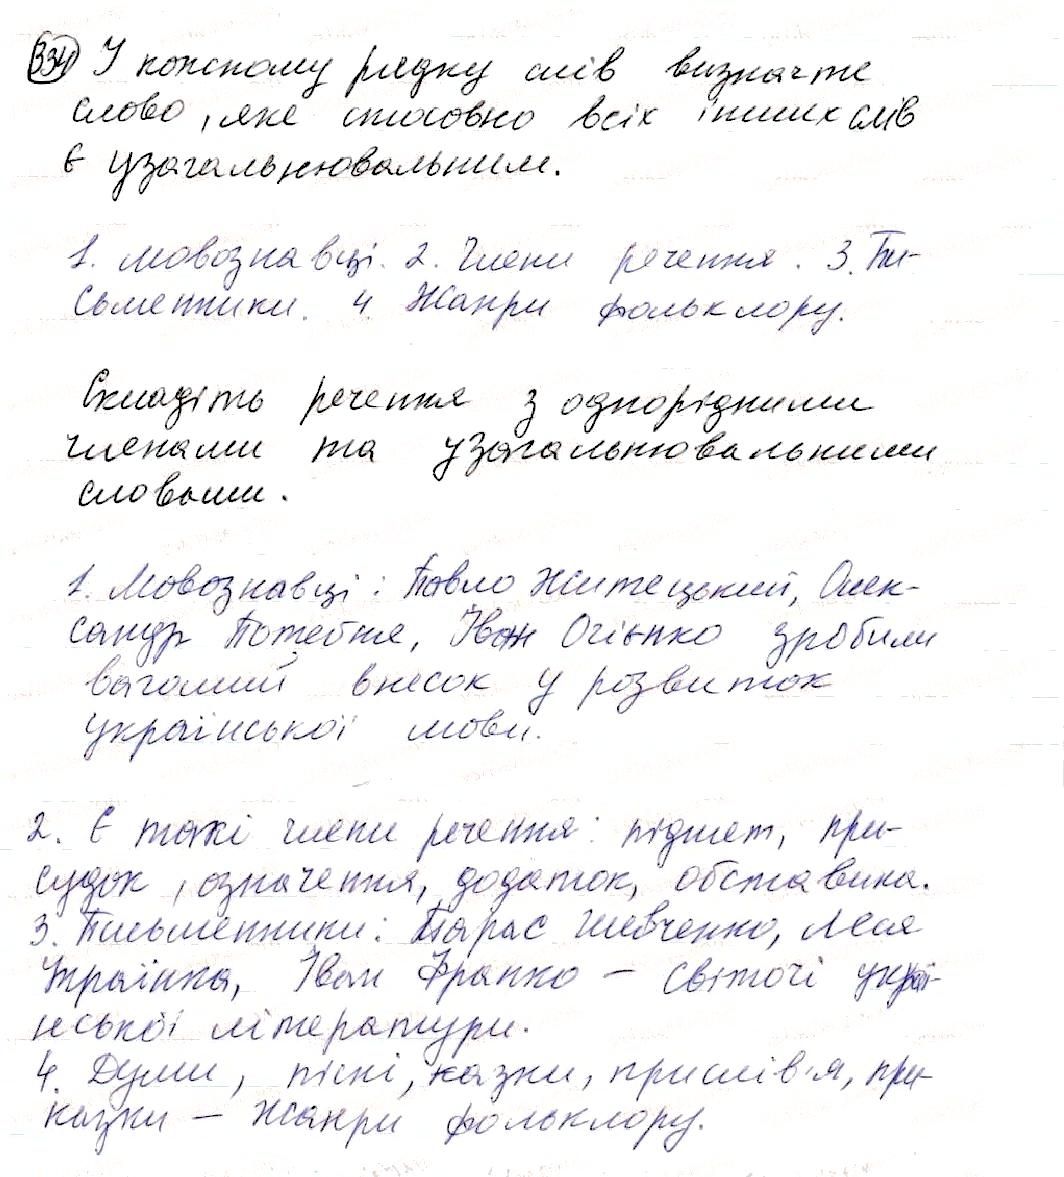 334 У кожному рядку слів визначте
слово, яке стосовно всіх інших слів
є узагальнювальним.
1. Мовознавці. 2. Члени речення. 3. Пи-
сьменники. 4. Жанри фольклору.
Складіть речення з однорідними
членами та узагальнювальними
словами.
1. Мовознавці: Павло Житецький, Олек-
сандр Потебня, Іван Огієнко зробили
вагомий внесок у розвиток
української мови.
2. Є такі члени речення: підмет, при-
судок, означення, додаток, обставина.
3. Письменники: Тарас Шевченко, Леся
Українка, Іван Франко – світочі украї-
нської літератури.
4. Думи, пісні, казки, прислів'я, при-
казки – жанри фольклору.